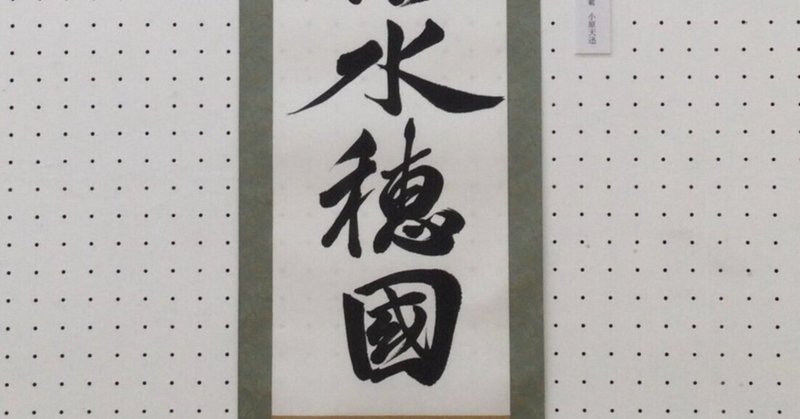 水穂國
小原天迅